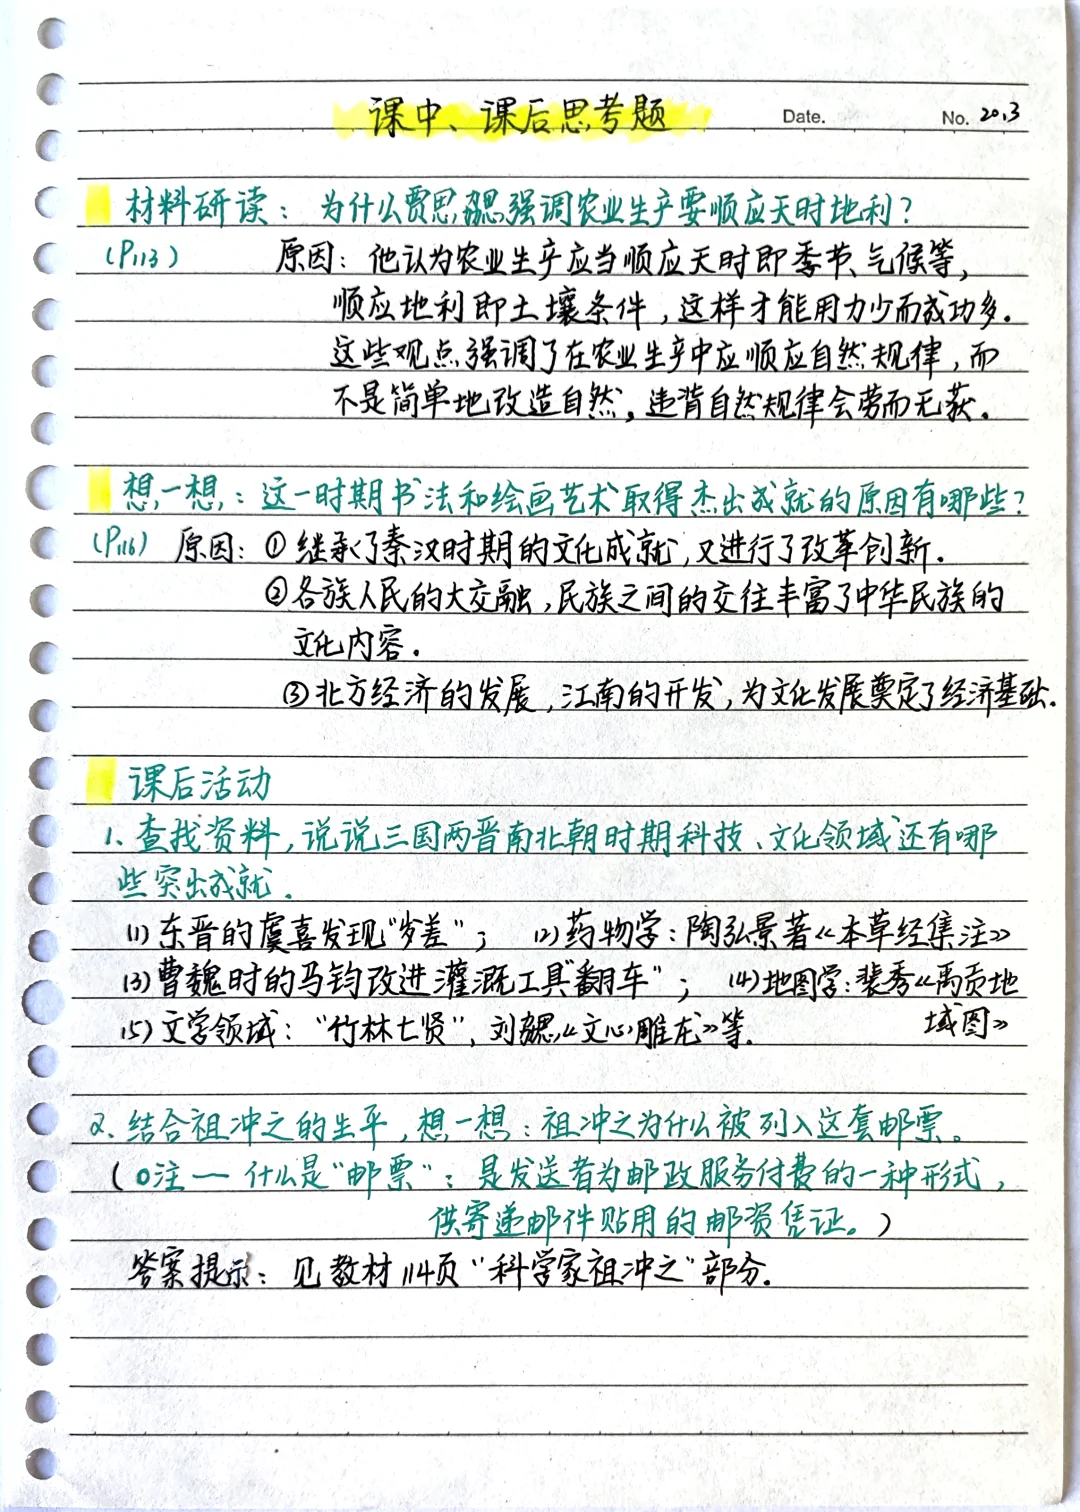 课中、课后思考题 Date. No. 20.3
材料研读：为什么贾思勰强调农业生产要顺应天时地利？
(P113) 原因：他认为农业生产应当顺应天时即季节、气候等，
顺应地利即土壤条件，这样才能用力少而成功多.
这些观点强调了在农业生产中应顺应自然规律，而
不是简单地改造自然。违背自然规律会劳而无获.
想一想：这一时期书法和绘画艺术取得杰出成就的原因有哪些？
(P116) 原因：①继承了秦汉时期的文化成就，又进行了改革创新.
②各族人民的大交融，民族之间的交往丰富了中华民族的
文化内容.
③北方经济的发展，江南的开发，为文化发展奠定了经济基础.
课后活动
1、查找资料，说说三国两晋南北朝时期科技、文化领域还有哪
些突出成就.
(1)东晋的虞喜发现"岁差"； (2)药物学：陶弘景著《本草经集注》
(3)曹魏时的马钧改进灌溉工具"翻车"； (4)地图学：裴秀《禹贡地
域图》
(5)文学领域："竹林七贤"，刘勰《文心雕龙》等.
2、结合祖冲之的生平，想一想：祖冲之为什么被列入这套邮票。
(o注一 什么是"邮票"：是发送者为邮政服务付费的一种形式，
供寄递邮件贴用的邮资凭证。)
答案提示：见教材114页"科学家祖冲之"部分.